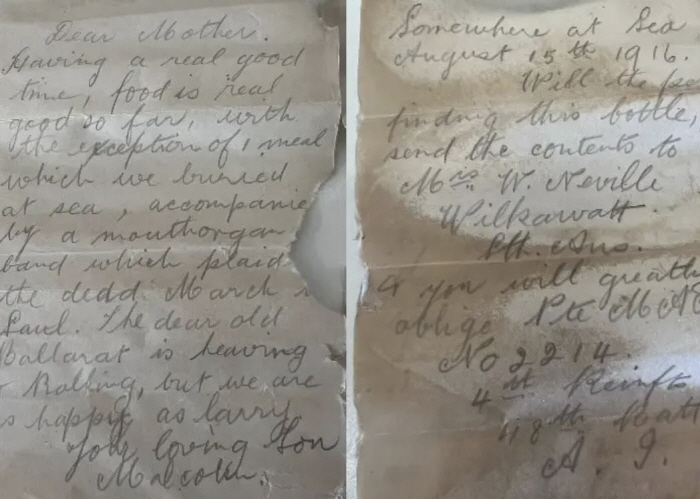 Dear Mother.
Having a real good
time, food is real
good so far, with
the exception of 1 meal
which we buried
at sea, accompanie
by a mouthorgan
band which plaid
the dedd March
Saul. The dear old
Ballarat is heaving
& Rolling, but we are
as happy as larry
Your loving Son
Malcolm.
Somewhere at Sea
August 15th 1916.
Will the pe
finding this bottle,
send the contents to
Mrs W. Neville
Wilkawatt
Sth. Aus.
& you will greatl
oblige Pte M A N
No 2214.
4th Reinfts
48th Batt
A. I.